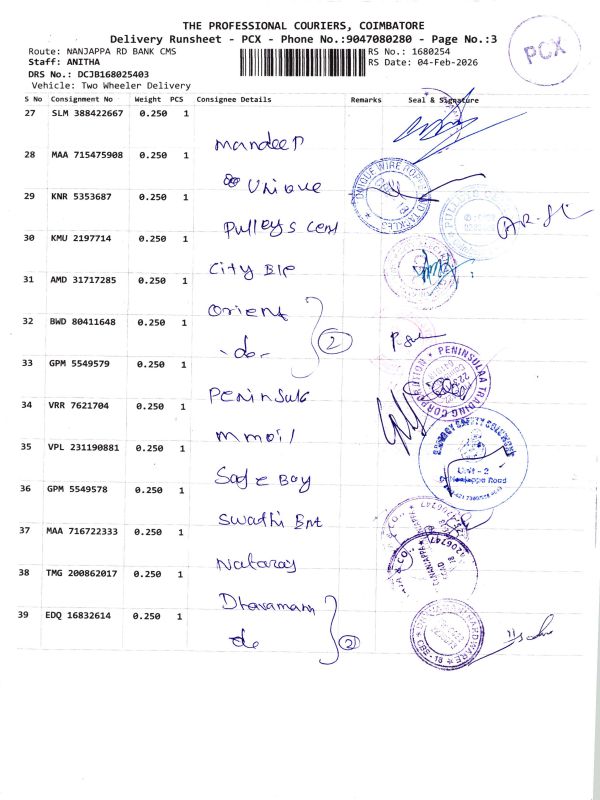 THE PROFESSIONAL COURIERS, COIMBATORE
Delivery Runsheet - PCX - Phone No.:9047080280 - Page No.:3
PCX
Route: NANJAPPA RD BANK CMS
RS No.: 1680254
Staff: ANITHA
RS Date: 04-Feb-2026
DRS No.: DCJB168025403
Vehicle: Two Wheeler Delivery
S No Consignment No Weight PCS Consignee Details Remarks Seal & Signature
27 SLM 388422667 0.250 1
Mandeep
28 MAA 715475908 0.250 1
Unique
UNIQUE WIRE ROPE AND TACKLES
29 KNR 5353687 0.250 1
Pulleys Cent
30 KMU 2197714 0.250 1
City Ele
31 AMD 31717285 0.250 1
Orient
32 BWD 80411648 0.250 1
-do-
2
33 GPM 5549579 0.250 1
Peninsula
PENINSULAA TRADING CORPORATION
34 VRR 7621704 0.250 1
mmoil
35 VPL 231190881 0.250 1
Safe Boy
ENERGY SAFETY SOLUTIONS
Unit - 2
Dr Nanjappa Road
36 GPM 5549578 0.250 1
Swathi Ent
37 MAA 716722333 0.250 1
Nataraj
38 TMG 200862017 0.250 1
Dharamani
39 EDQ 16832614 0.250 1
do
2